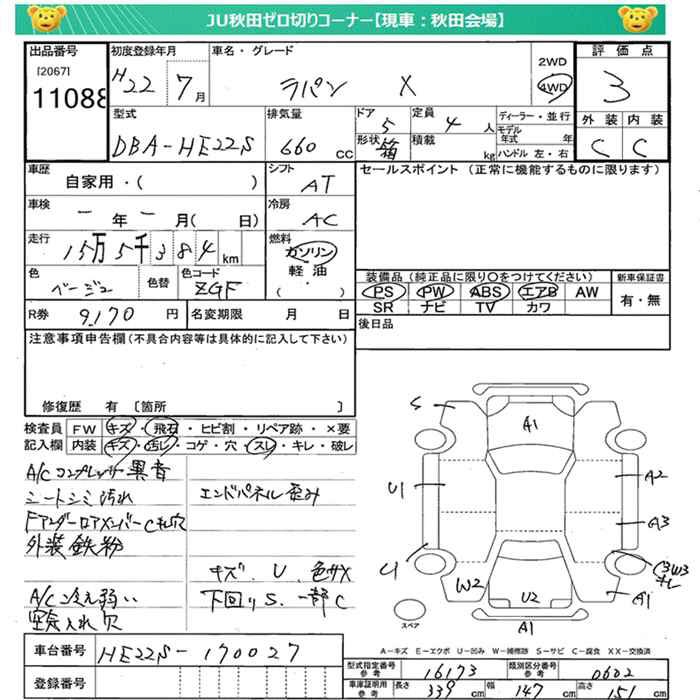 JU秋田ゼロ切りコーナー【現車：秋田会場】
出品番号
[2067]
11088
初度登録年月
H22 7月
車名・グレード
ラパン X
2WD
4WD
評価点
3
型式
DBA-HE22S
排気量
660 CC
ドア
5
形状
箱
定員
4 人
積載
kg
ディーラー・並行
モデル年式 年
ハンドル 左・右
外装 内装
C C
車歴
自家用・( )
シフト
AT
セールスポイント (正常に機能するものに限ります)
車検
ー年ー月( 日)
冷房
AC
走行
15万5千384km
燃料
ガソリン
軽油
( )
色
ベージュ
色替
色コード
ZGF
装備品 (純正品に限り○をつけてください)
新車保証書
PS PW ABS エアB AW
SR ナビ TV カワ
有・無
R券 9,170 円
名変期限 月 日
後日品
注意事項申告欄(不具合内容等は具体的に記入して下さい)
修復歴 有 〔箇所 〕
検査員記入欄
FW キズ・飛石・ヒビ割・リペア跡・×要
内装 キズ・汚レ・コゲ・穴・スレ・キレ・破レ
A/Cコンプレッサー異音
シートシミ汚れ
Fアンダーロアメンバーcサビ穴
外装鉄粉
A/C冷え弱い
エンドパネル歪み
キズ、U、色サメ
下回りS、一部C
S
A1
U1
A2
A3
U1
W2
U2
A1
A1
スペア
A－キズ E－エクボ U－凹み W－補修跡 S－サビ C－腐食 XX－交換済
車台番号 HE22S-170027
登録番号
型式指定番号 参考 16173
類別区分番号 参考 0602
車庫証明用 参考 長さ 339 cm 幅 147 cm 高さ 151 cm